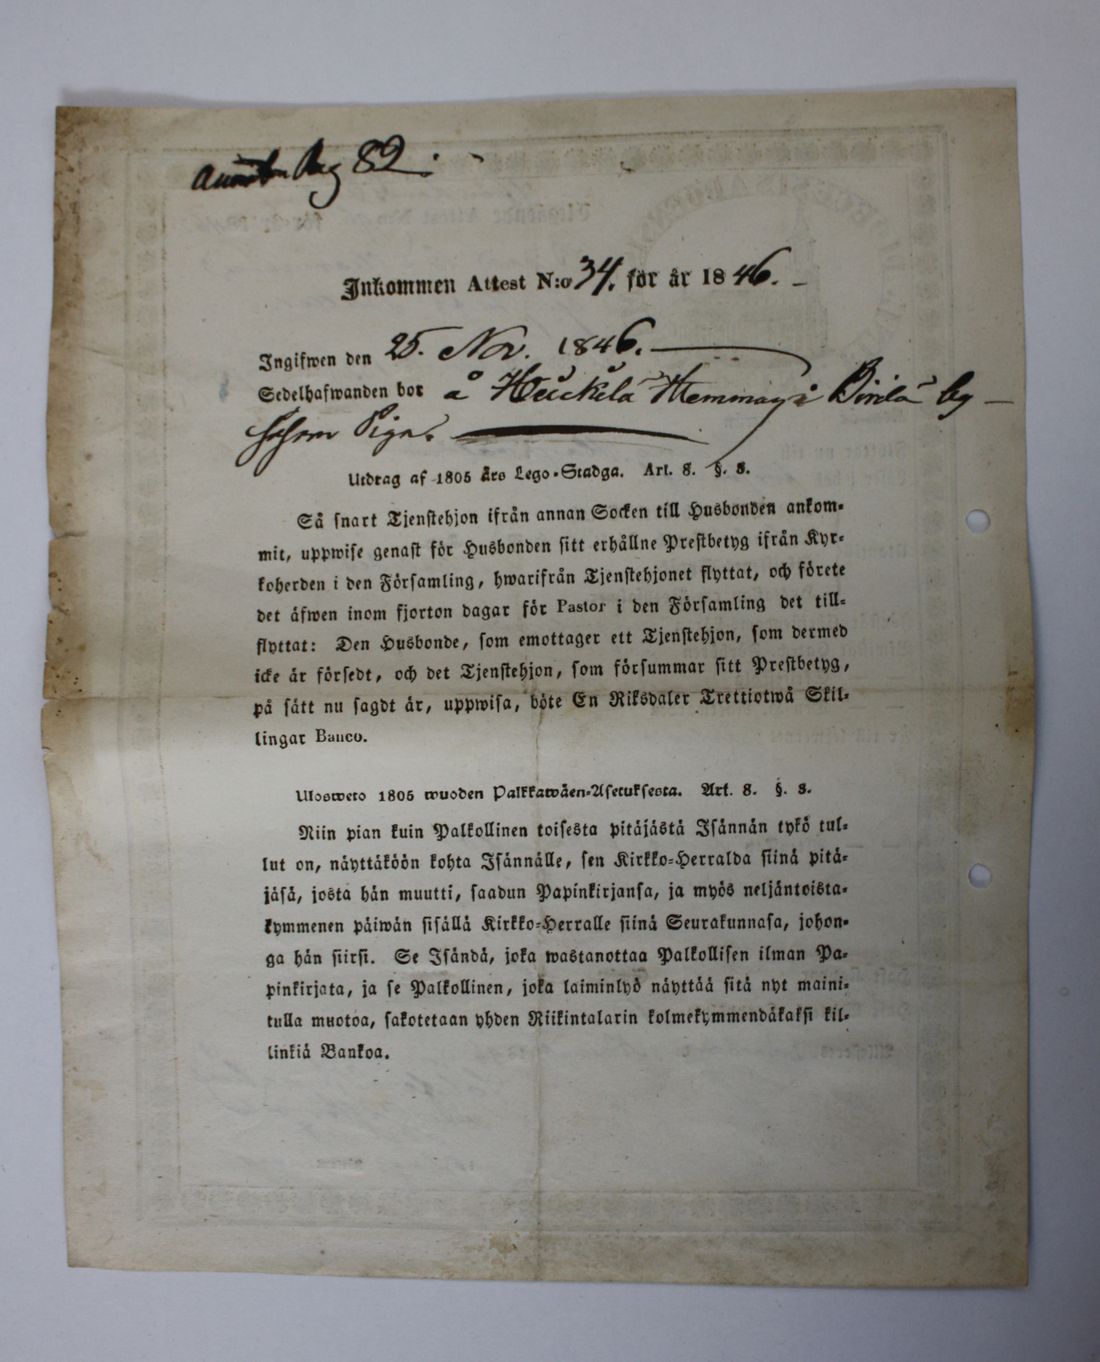 pag 82.
Inkommen Attest N:o 34. för år 1846.
Ingifwen den 25. Nov. 1846.
Sedelhafwanden bor å Heickelä Hemman i by
såsom Piga.
Utdrag af 1805 års Lego-Stadga. Art. 8. §. 3.
Så snart Tjenstehjon ifrån annan Socken till Husbonden ankom-
mit, uppwise genast för Husbonden sitt erhållne Prestbetyg ifrån Kyr-
koherden i den Församling, hwarifrån Tjenstehjonet flyttat, och förete
det äfwen inom fjorton dagar för Pastor i den Församling det till-
flyttat: Den Husbonde, som emottager ett Tjenstehjon, som dermed
icke är försedt, och det Tjenstehjon, som försummar sitt Prestbetyg,
på sätt nu sagdt är, uppwisa, böte En Riksdaler Trettiotwå Skil-
lingar Banco.
Ulosweto 1805 wuoden Palkkawäen-Asetuksesta. Art. 8. §. 3.
Niin pian kuin Palkollinen toisesta pitäjästä Isännän tykö tul-
lut on, näyttäköön kohta Isännälle, sen Kirkko-Herralda siinä pitä-
jäsä, josta hän muutti, saadun Papinkirjansa, ja myös neljäntoista-
kymmenen päiwän sisällä Kirkko-Herralle siinä Seurakunnasa, johon-
ga hän siirsi. Se Isändä, joka wastanottaa Palkollisen ilman Pa-
pinkirjata, ja se Palkollinen, joka laiminlyö näyttää sitä nyt maini-
tulla muotoa, sakotetaan yhden Riikintalarin kolmekymmendäkaksi kil-
linkiä Bankoa.